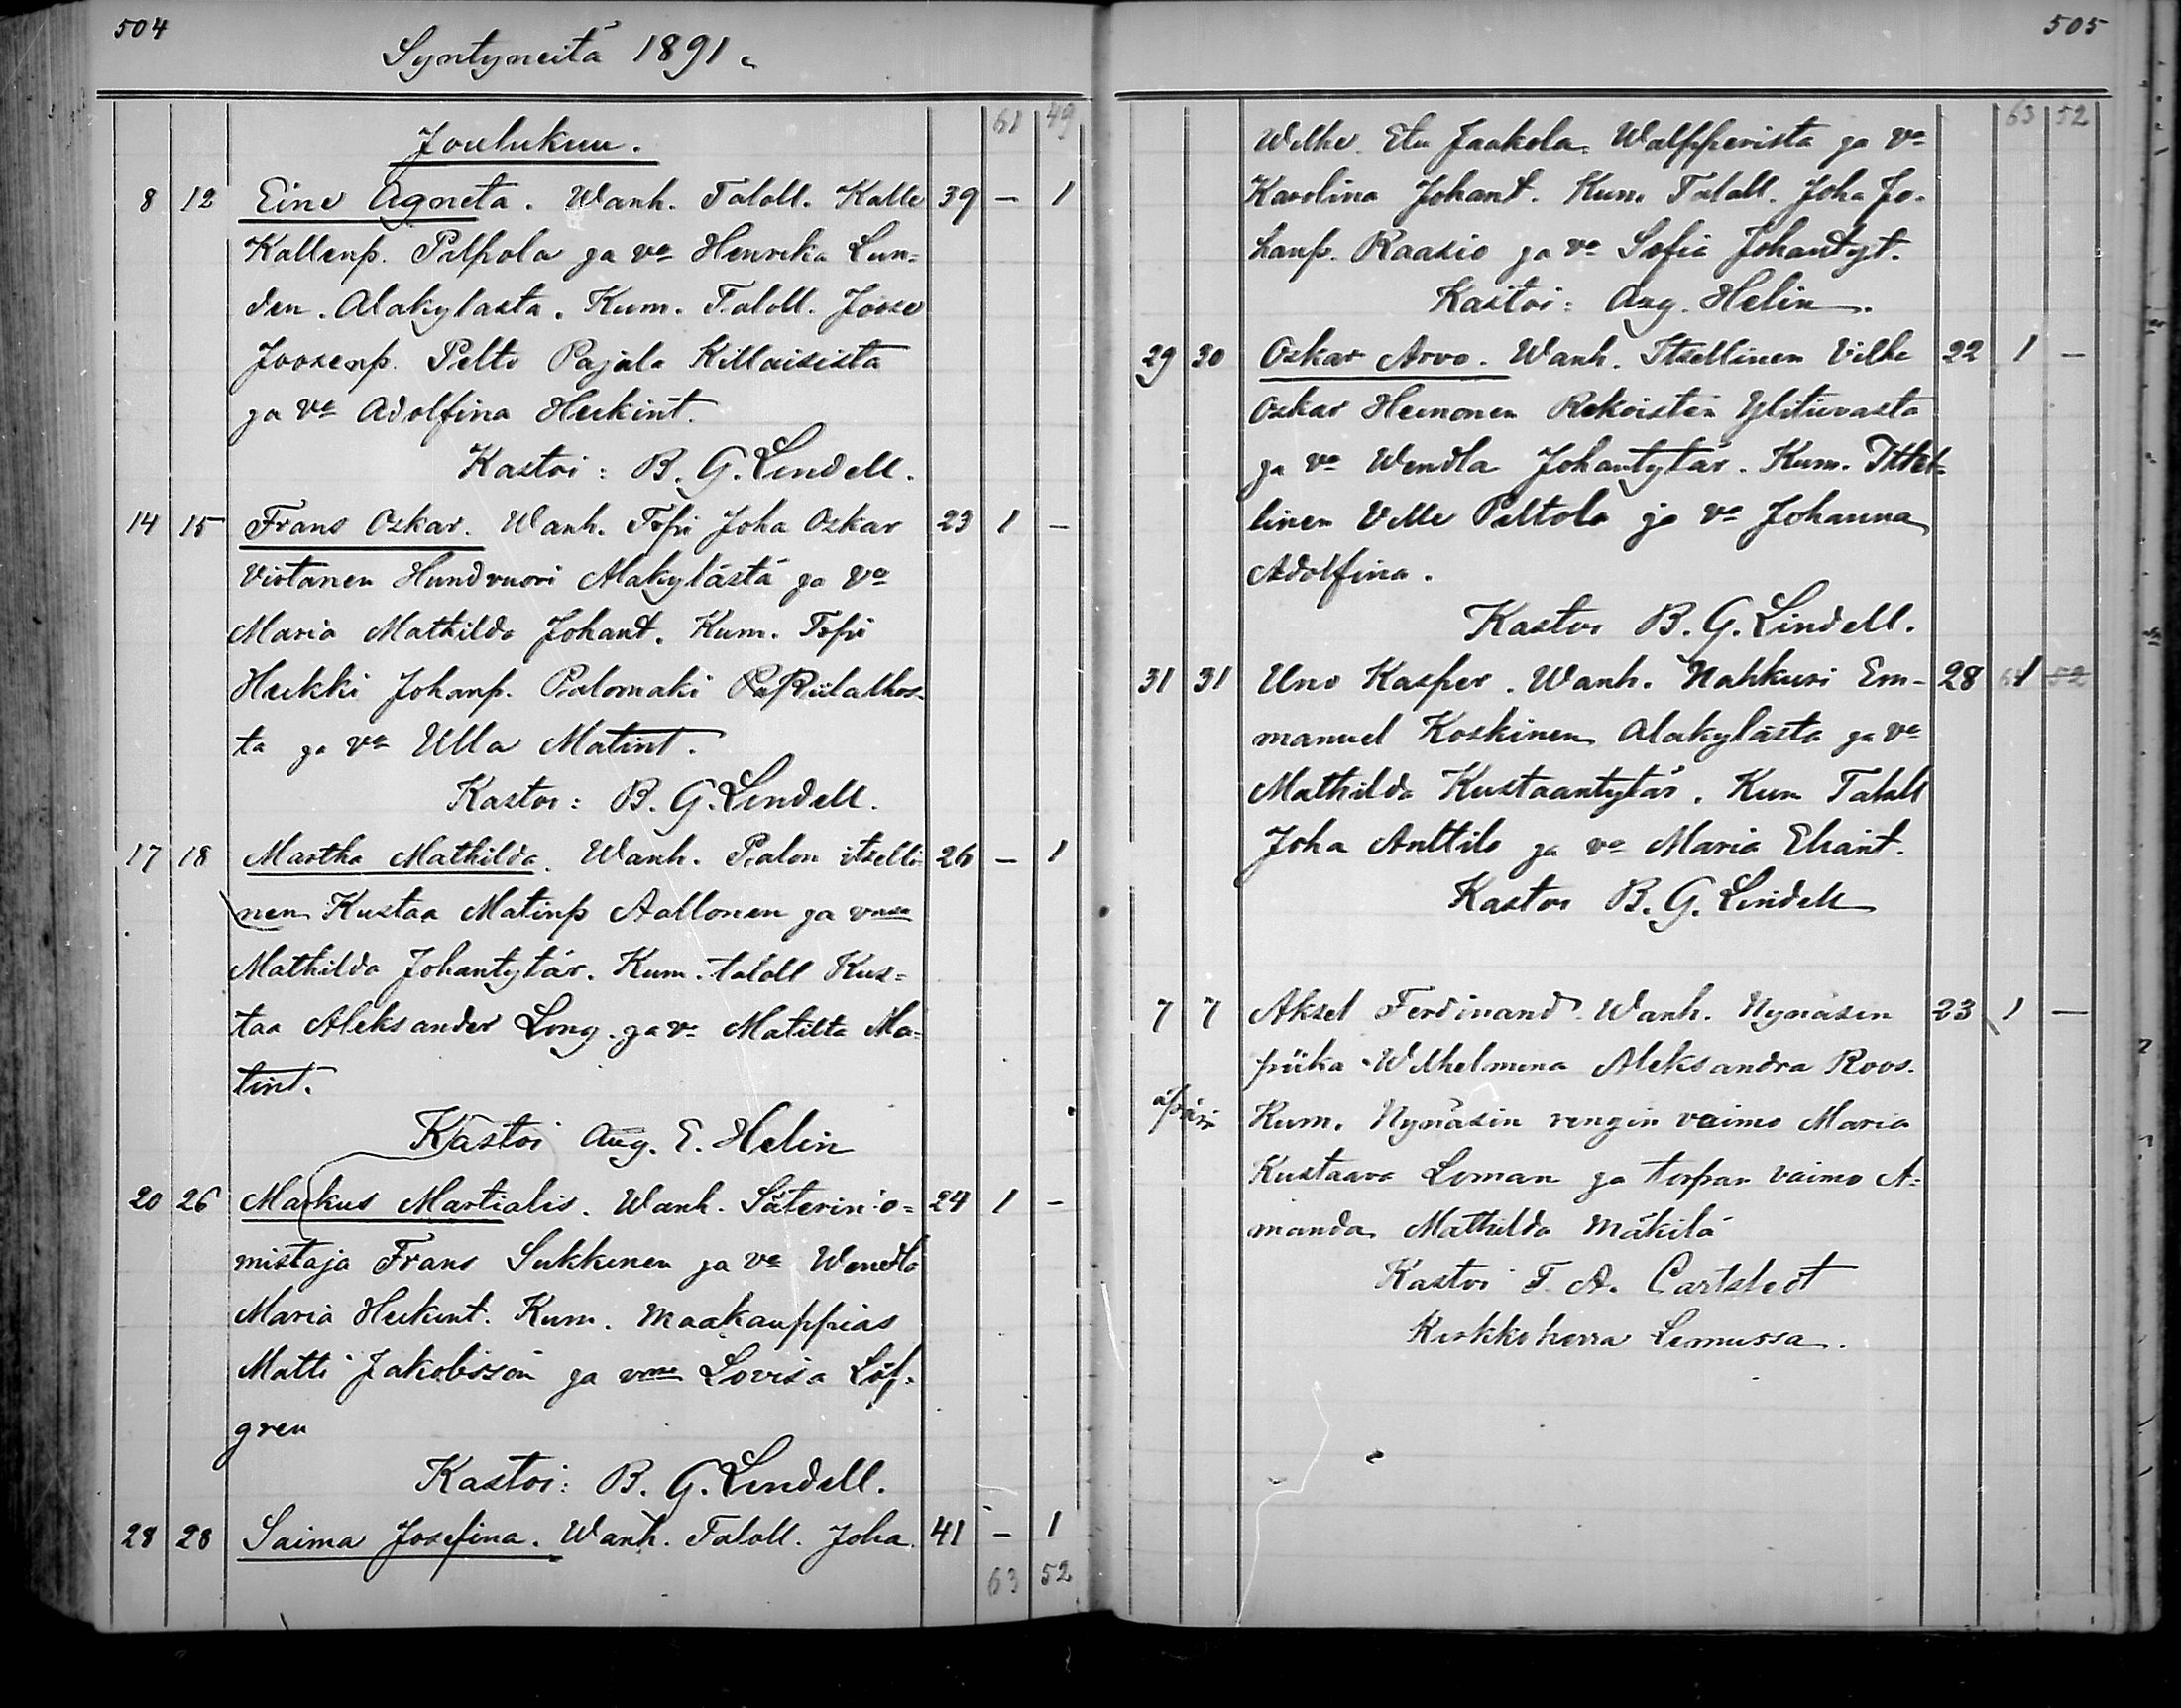 504
Syntyneitä 1891.
61 49
Joulukuu.
8 12 Eine Agneta. Wanh. Taloll. Kalle 39 – 1
Kallenp. Palpola ja va Henrika Lun=
den. Alakylasta. Kum. Taloll. Joose
Joosenp. Pelto Pajala Killaisista
ja va Adolfina Heikint.
Kastoi: B. G. Lindell.
14 15 Frans Oskar. Wanh. Torp. Joha Oskar 23 1 –
Virtanen Hundvuori Alakylästä ja va
Maria Mathilda Johant. Kum.
Heikki Johanp. Palomaki
ta ja va Ulla Matint.
Kastoi: B. G. Lindell.
17 18 Martha Mathilda. Wanh. Palon itselli- 26 – 1
nen Kustaa Matinp Aallonen ja vmsa
Mathilda Johantytär. Kum. taloll Kus=
taa Aleksander Long. ja va Matilta Ma=
tint.
Kastoi Aug. E. Helin
20 26 Markus Martialis. Wanh. Säterin o= 24 1 –
mistaja Frans Sukkinen ja va Wendla
Maria Heikint. Kum. Maakauppias
Matti Jakobsson ja vmo Lovisa Löf=
gren
Kastoi: B. G. Lindell.
28 28 Saima Josefina. Wanh. Taloll. Joha 41 – 1
63 52
505
63 52
Wilhe. Etu Jaakola. Walpperista ja va
Karolina Johant. Kum. Taloll. Joha Jo-
hanp. Raasio ja va Sofia Johantyt.
Kastoi: Aug. Helin.
29 30 Oskar Arvo. Wanh. Itsellinen Vilhe 22 1 –
Oskar Heinonen Rekoisten Ylituvasta
ja va Wendla Johantytär. Kum. Itsel-
linen Ville Paltola ja va Johanna
Adolfina.
Kastoi B. G. Lindell.
31 31 Uno Kasper. Wanh. Nahkuri Em- 28 1 52
manuel Koskinen Alakylästa ja va
Mathilda Kustaantytär. Kum Taloll
Joha Anttila ja va Maria Eliant.
Kastoi B. G. Lindell
7 7 Aksel Ferdinand Wanh. Nynäsin 23 1 –
piika Wilhelmina Aleksandra Roos.
äpärä Kum. Nynäsin rengin vaimo Maria
Kustaava Loman ja torpan vaimo A=
manda Mathilda Mäkilä
Kastoi F. A. Cartstedt
Kirkkoherra Lemussa.